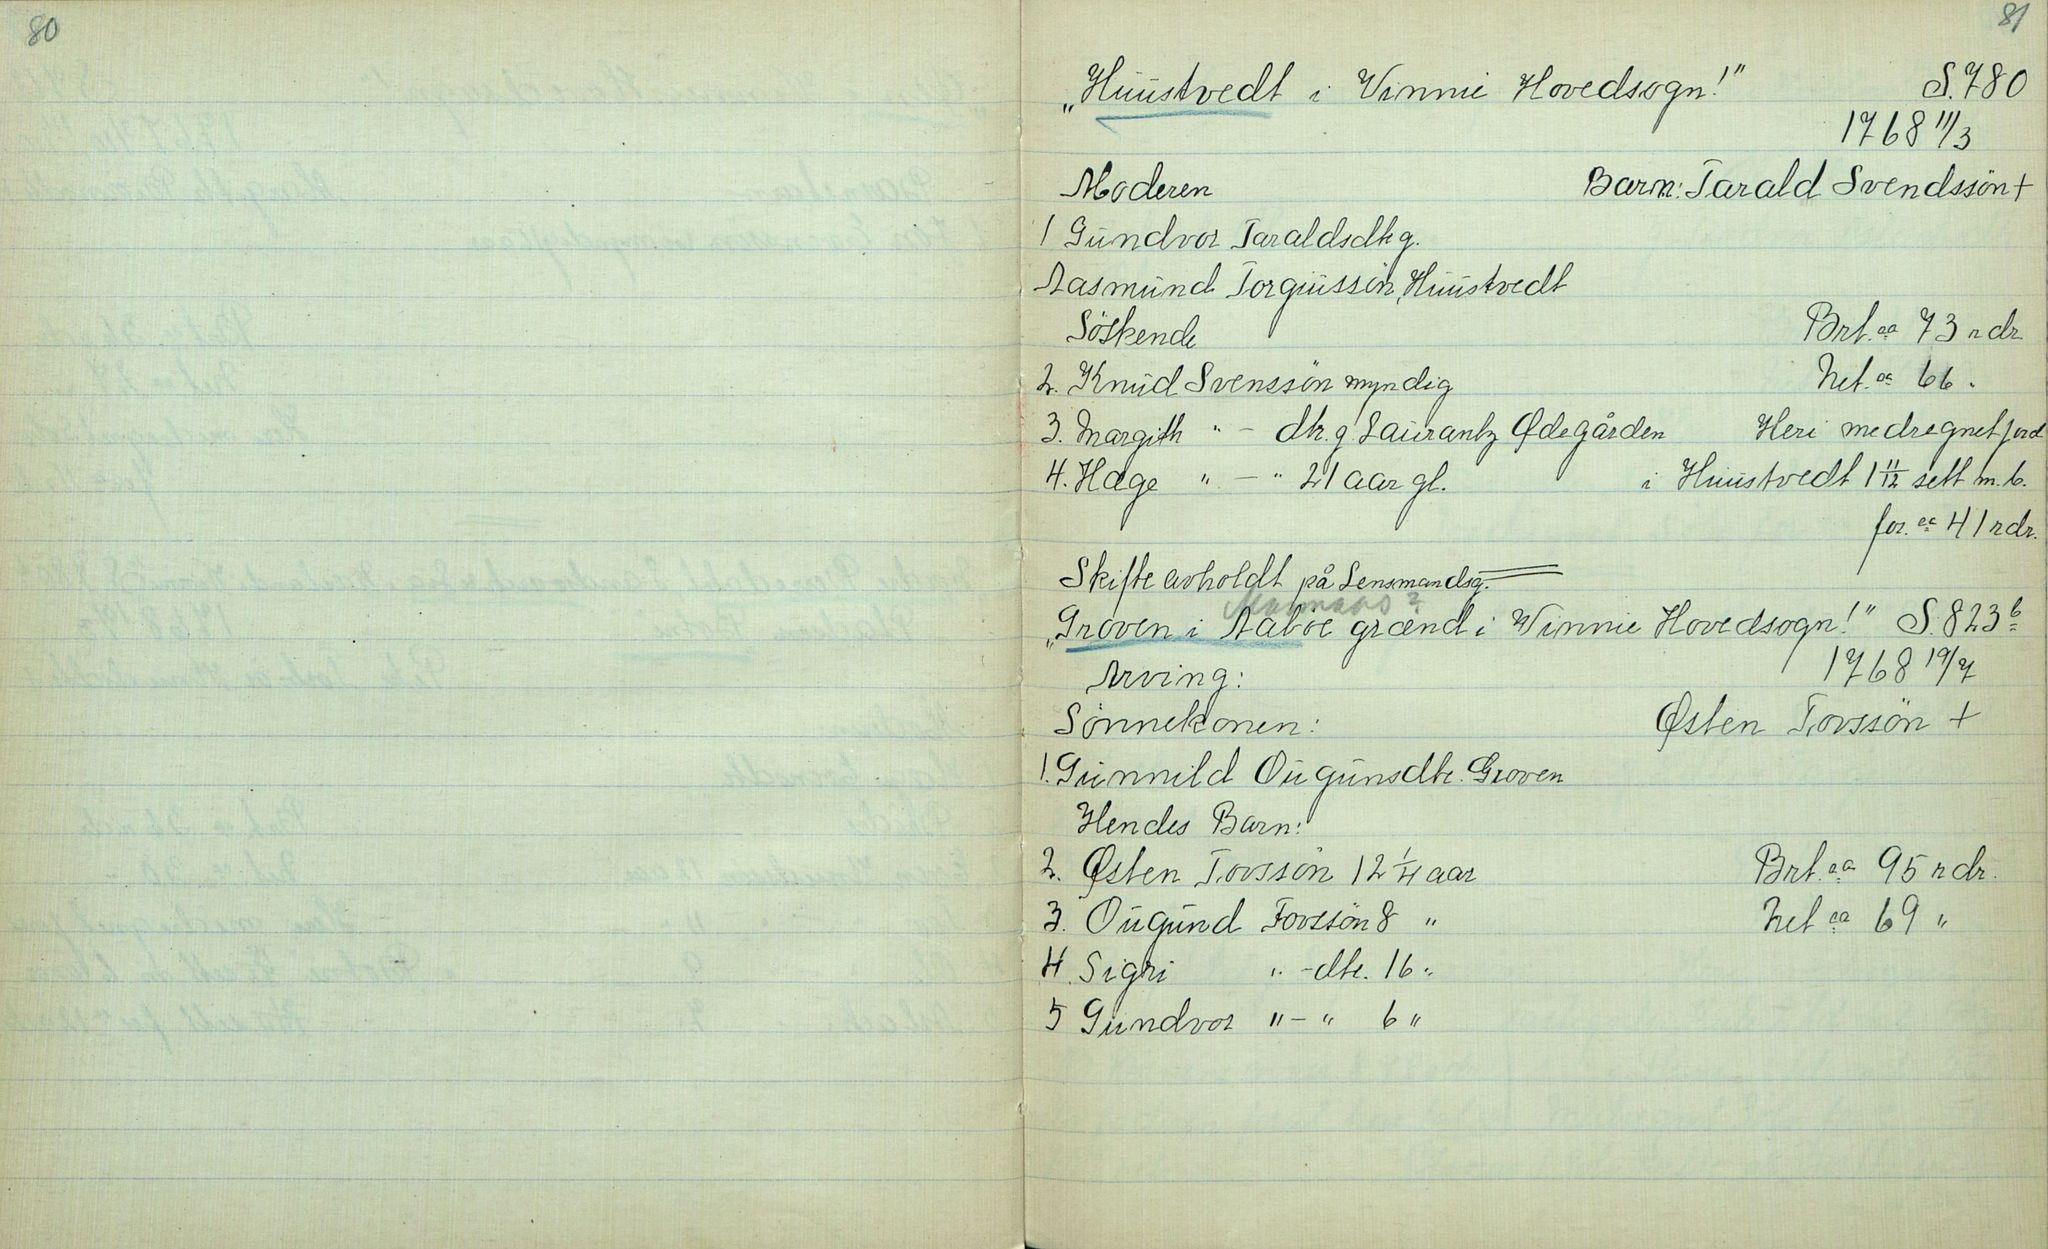 80
81
„Huustvedt i Vinnie Hovedsogn!" S. 780
1768 11/3
Moderen Barn: Tarald Svendssön +
1 Gundvor Taraldsdtr g.
Aasmund Torgiussön, Huustvedt
Söskende Brt. ca 73 rdr.
2. Knud Svenssön myndig Net. ca 66 "
3. Margith " - dtr. g. Laurantz Ødegården Heri medregnet jord
4. Hage " - " 21 aar gl. i Huustvedt 1 11/12 sett m. b.
for ca 41 rdr.
Skifte avholdt på Lensmandsg.
Mannaas?
„Groven i Aaboe grænd i Vinnie Hovedsogn!" S. 823 b
1768 19/7
Arving:
Sönnekonen: Østen Tovssön +
1. Gunnild Ougunsdtr. Groven
Hendes Barn:
2. Østen Tovssön 12 1/4 aar Brt. ca 95 rdr.
3. Ougund Tovssön 8 " Net ca 69 "
4. Sigri " - dtr. 16 "
5 Gundvor " - " 6 "